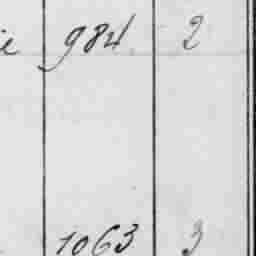 ie 984 2
1063 3